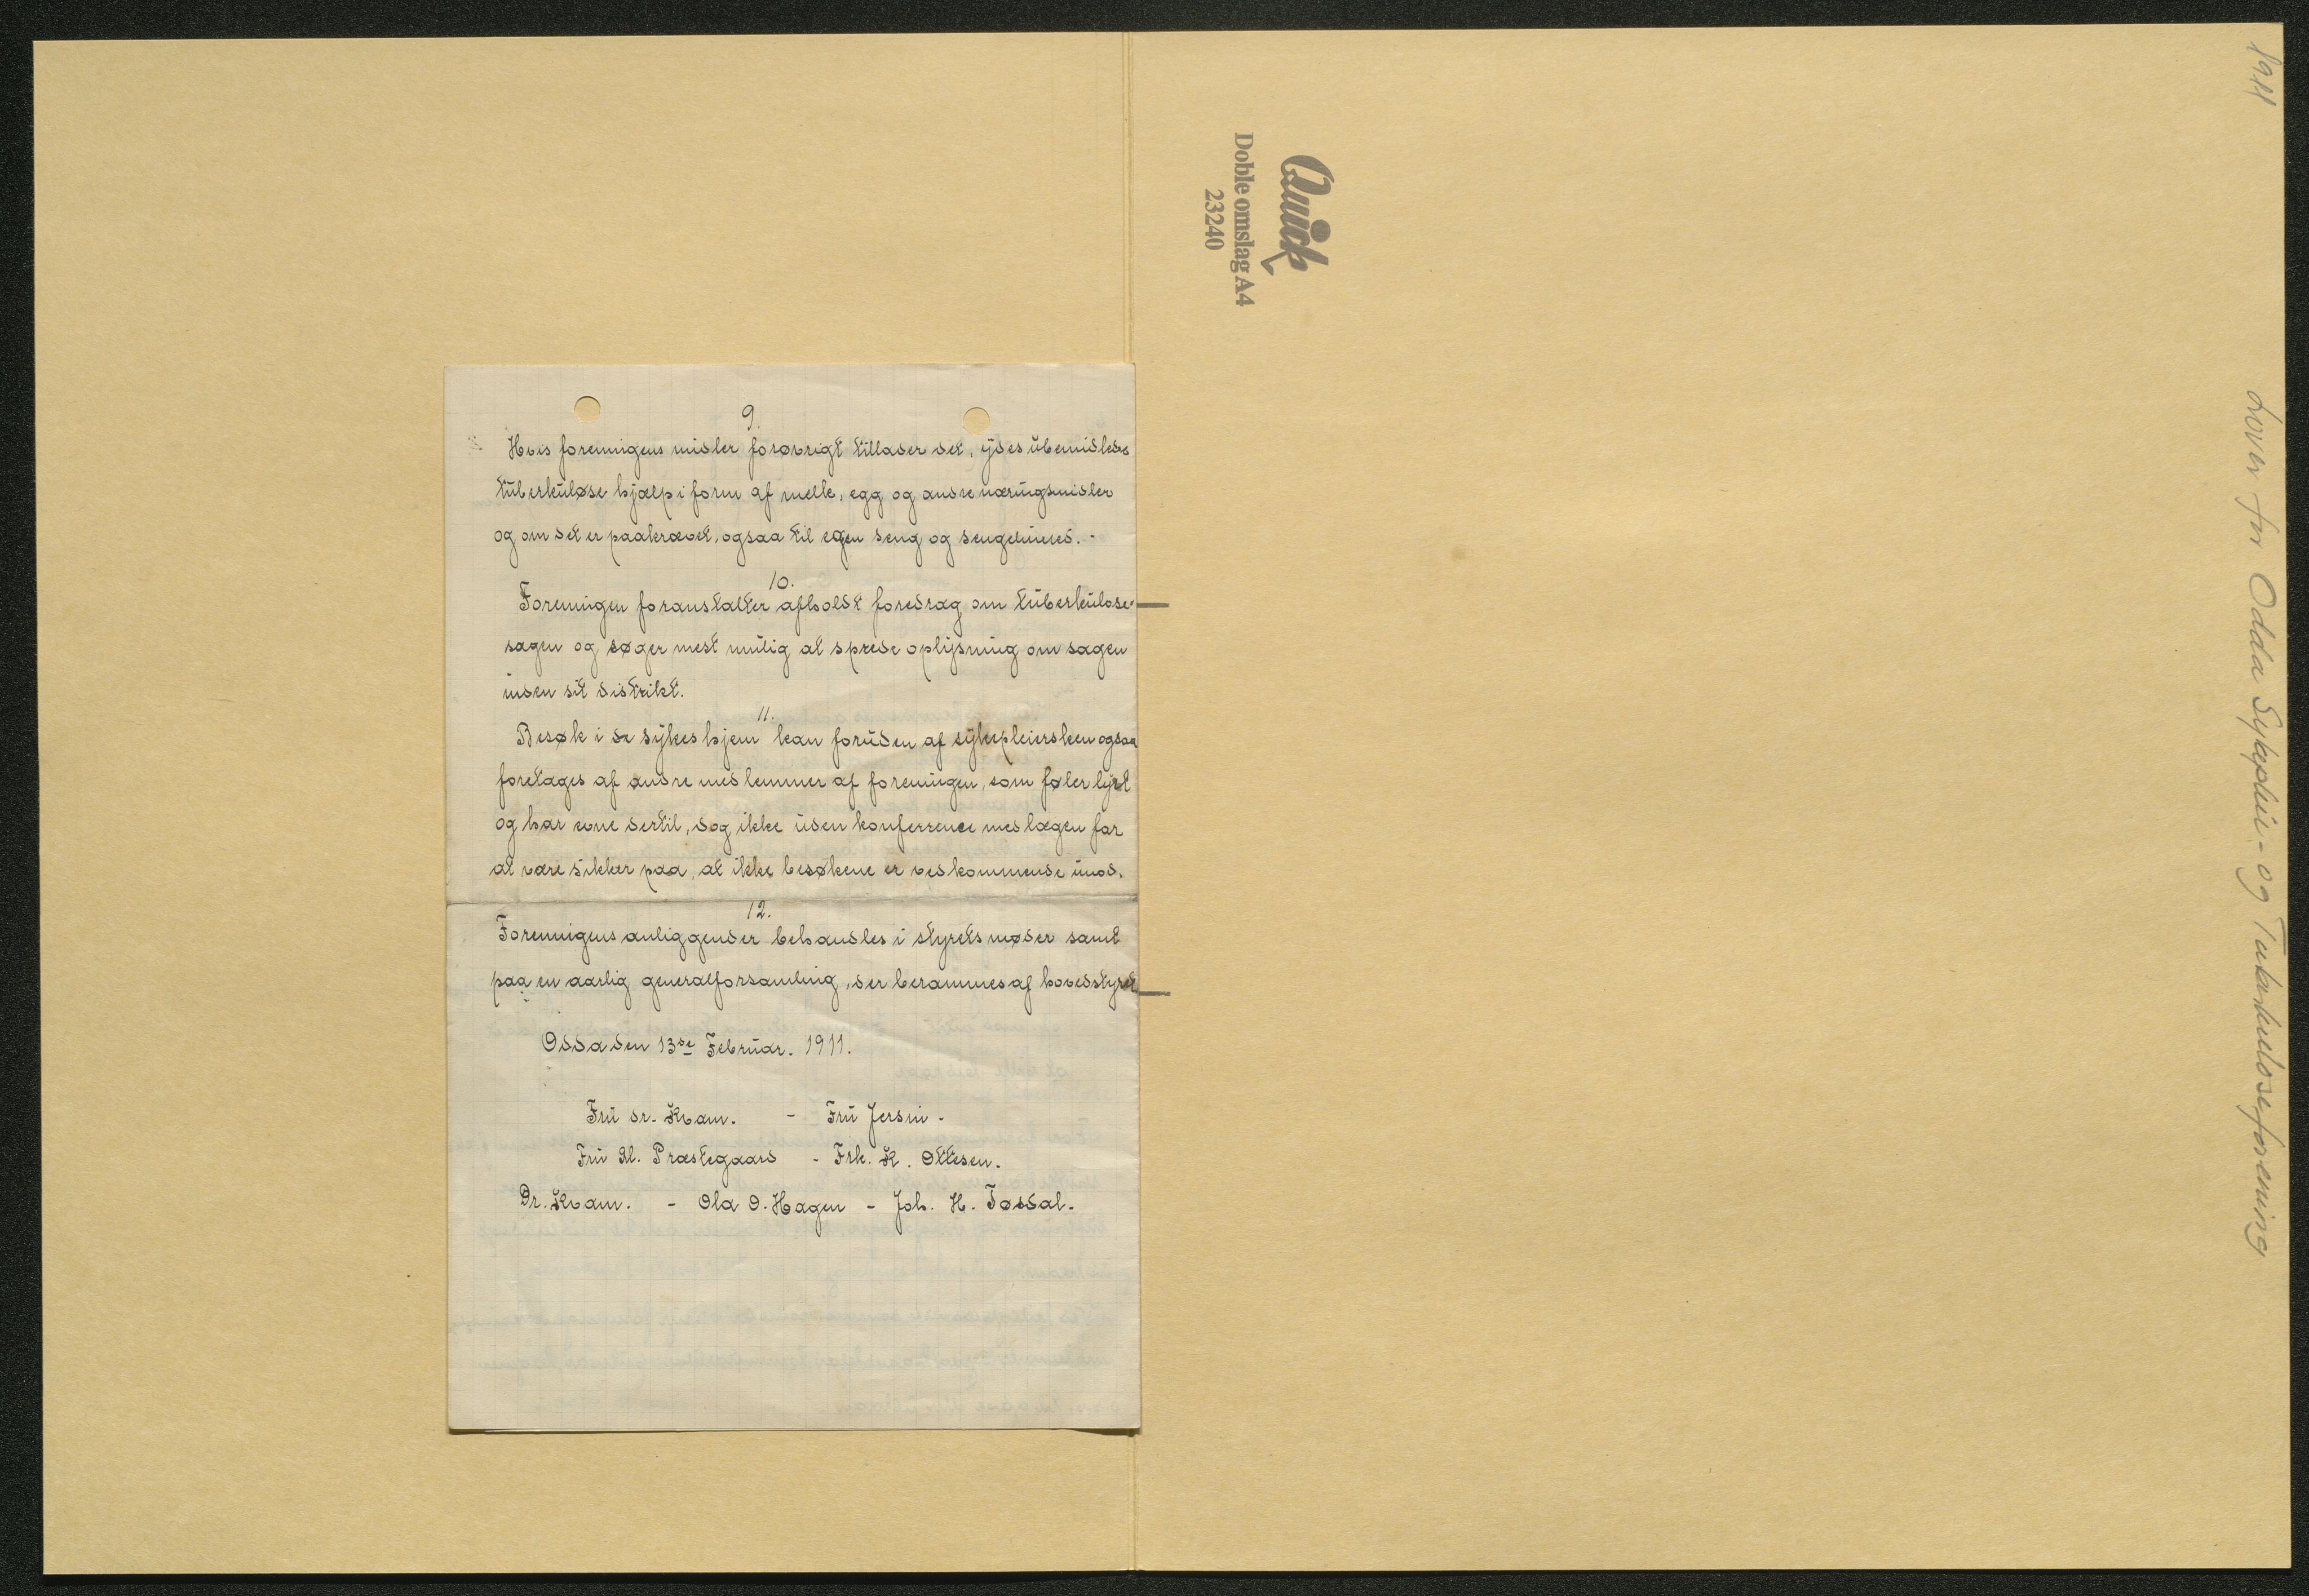 9.
Hvis foreningens midler forøvrigt tillader det, ydes ubemidlede
tuberkuløse hjælp i form af melk, egg og andre næringsmidler
og om det er paakrævet, ogsaa til egen seng og sengeklæder.-
10.
Foreningen foranstalter afholdt foredrag om tuberkulose-
sagen og søger mest mulig at sprede oplysning om sagen
inden sit distrikt.
11.
Besøk i de sykes hjem kan foruden af sykepleiersken ogsaa
foretages af andre medlemmer af foreningen, som føler lyst
og har evne dertil, dog ikke uden konferrence med lægen for
at være sikker paa, at ikke besøkene er vedkommende imod.
12.
Foreningens anliggender behandles i styrets møder samt
paa en aarlig generalforsamling, der berammes af hovedstyret
Odda den 13de Februar. 1911.
Fru dr. Kvam. - Fru Jersin -
Fru Al. Præstegaard - Frk. K. Ottesen.
Dr. Kvam. - Ola O. Hagen - Joh. H. Tossdal.
Quick
Doble omslag A4
23240
1911
Lover for Odda Sykepleie- og Tuberkuloseforening